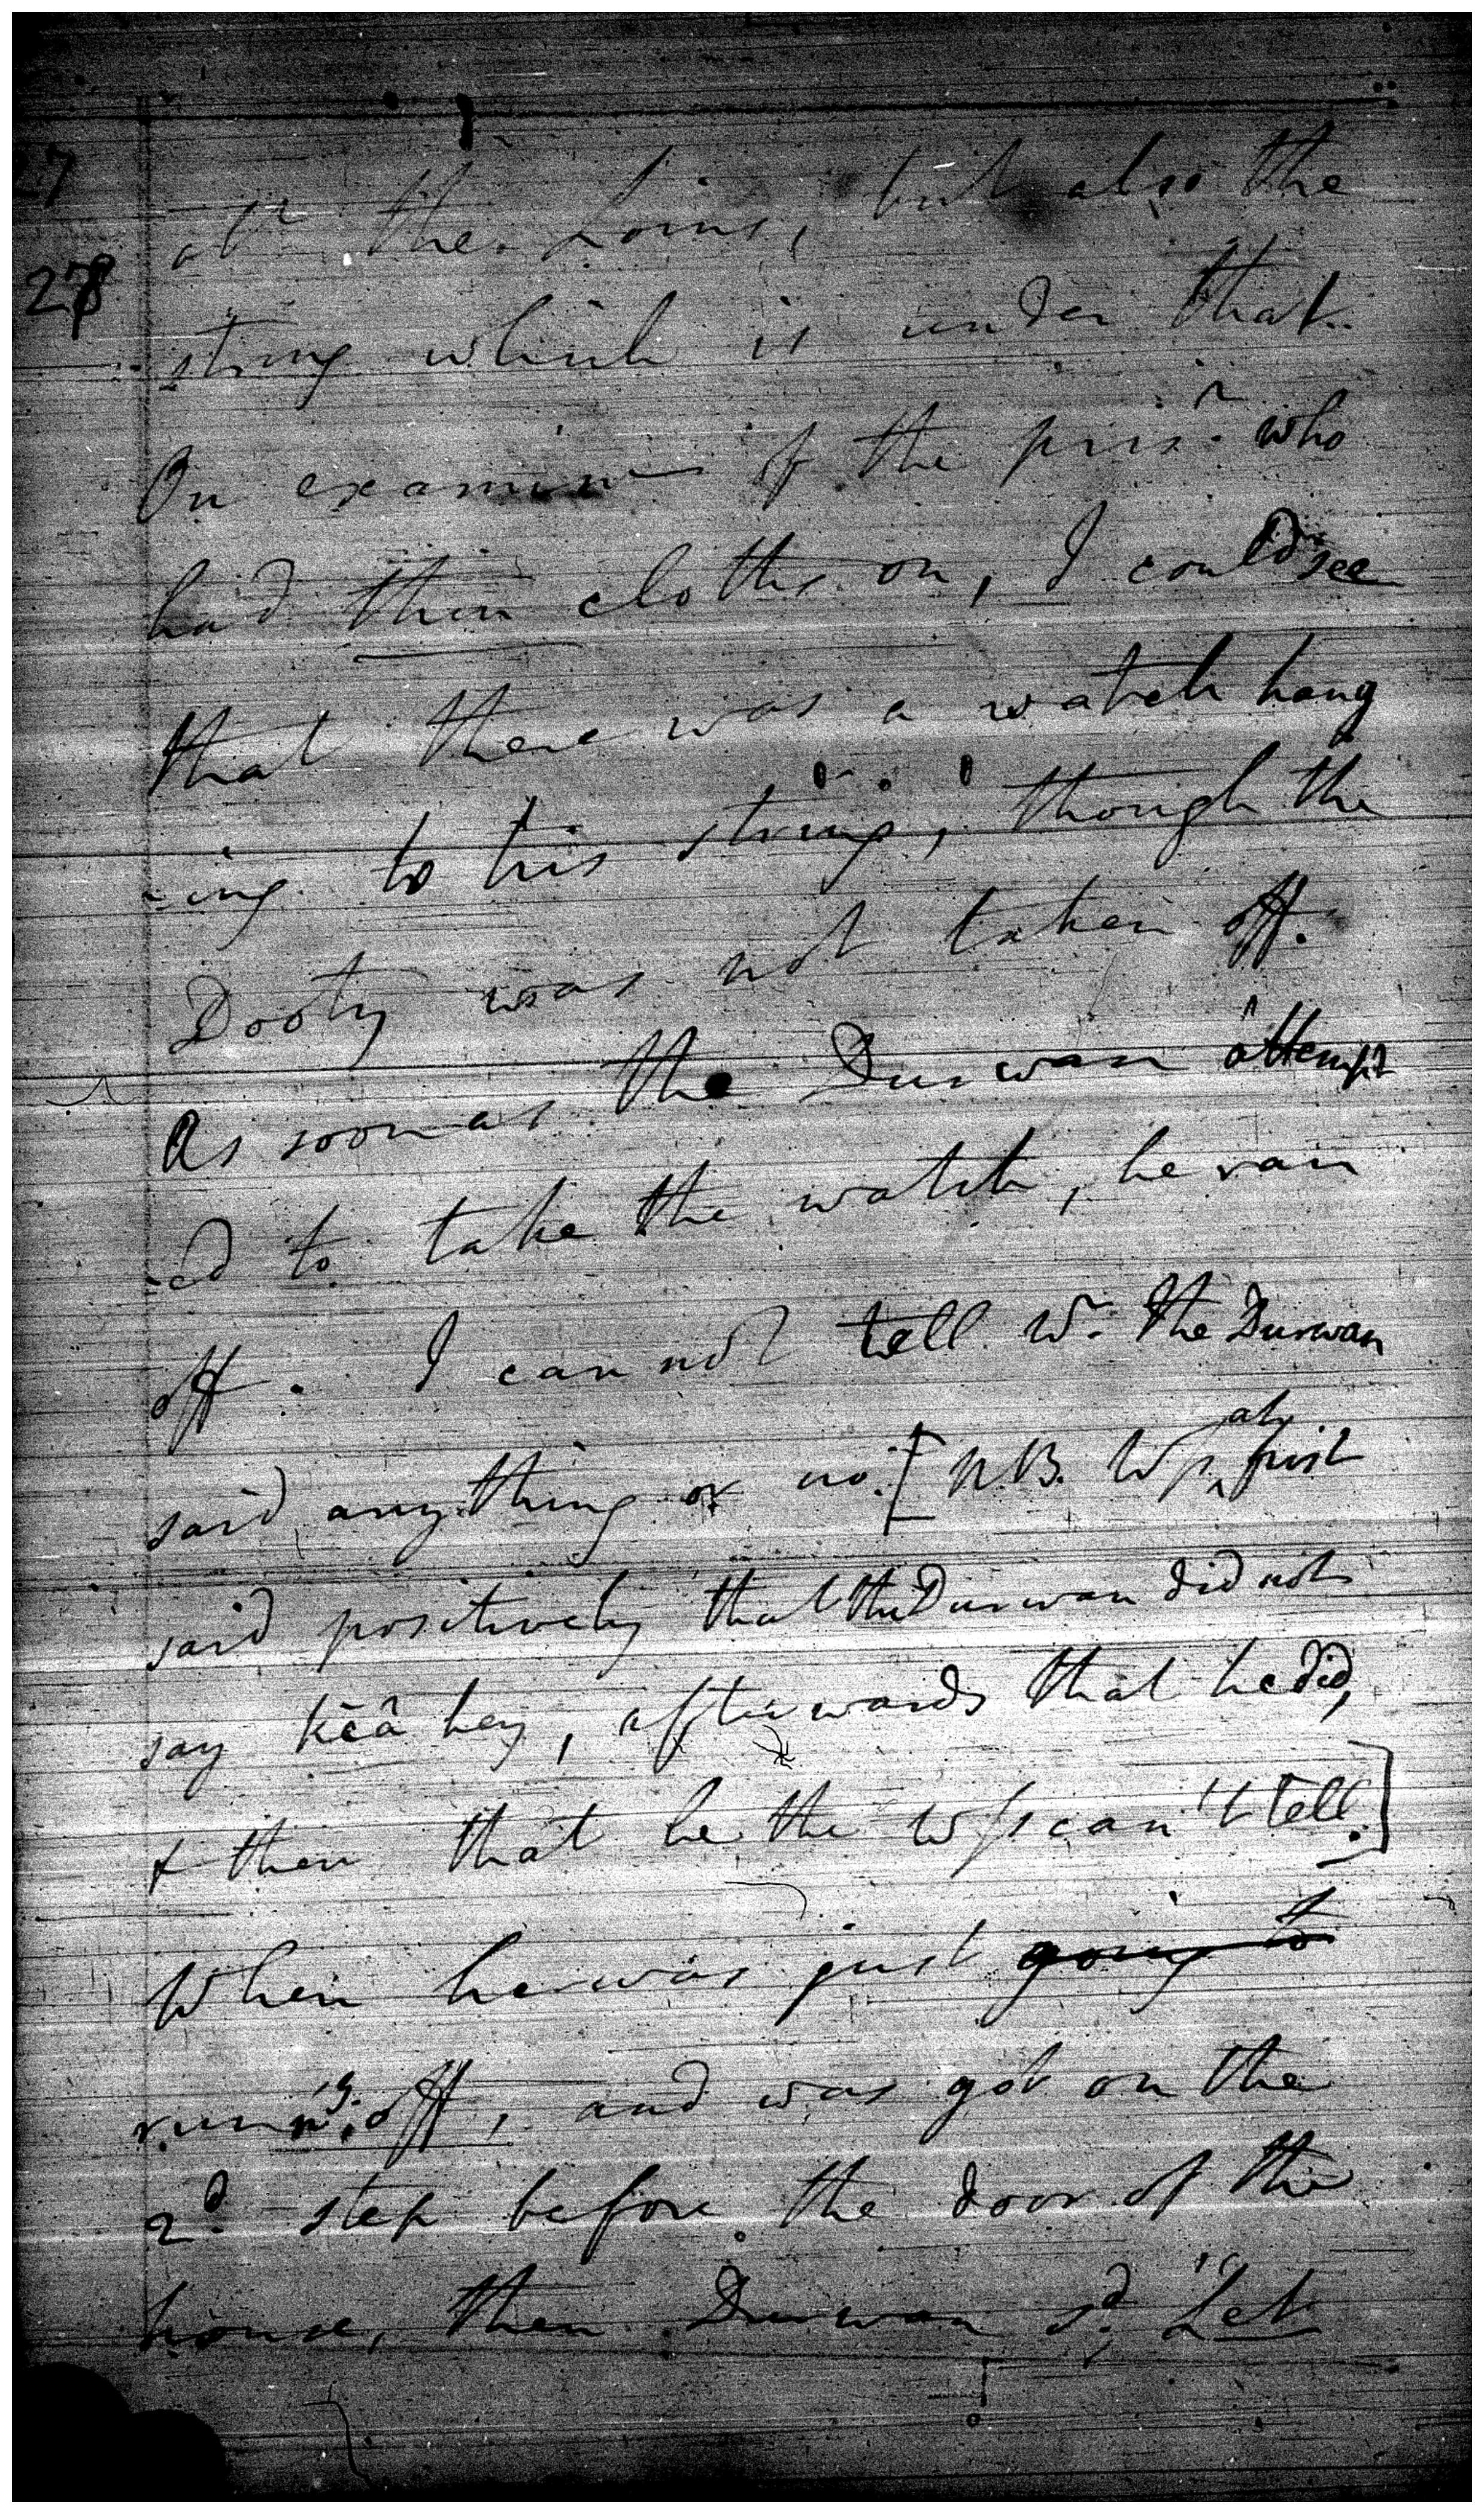 27
off the Loins, but also the
28
string which is under that.
On examinn of the prisr. who
had thin cloths on, I could see
that there was a watch hang
-ing to his string, though the
Dooty was not taken off.
As soon as the Durwan attempt
-ed to take the watch, he ran
off. I can not tell Wr. the Durwan
said any thing or no. [N.B. W/s at first
said positively that the Durwan did not
say kēā hey, afterwards that he did,
& then that he the W/s can't tell.]
When he was just going to
runng. off, and was got on the
2d. step before the door of the
house, then Durwan sd. "Let